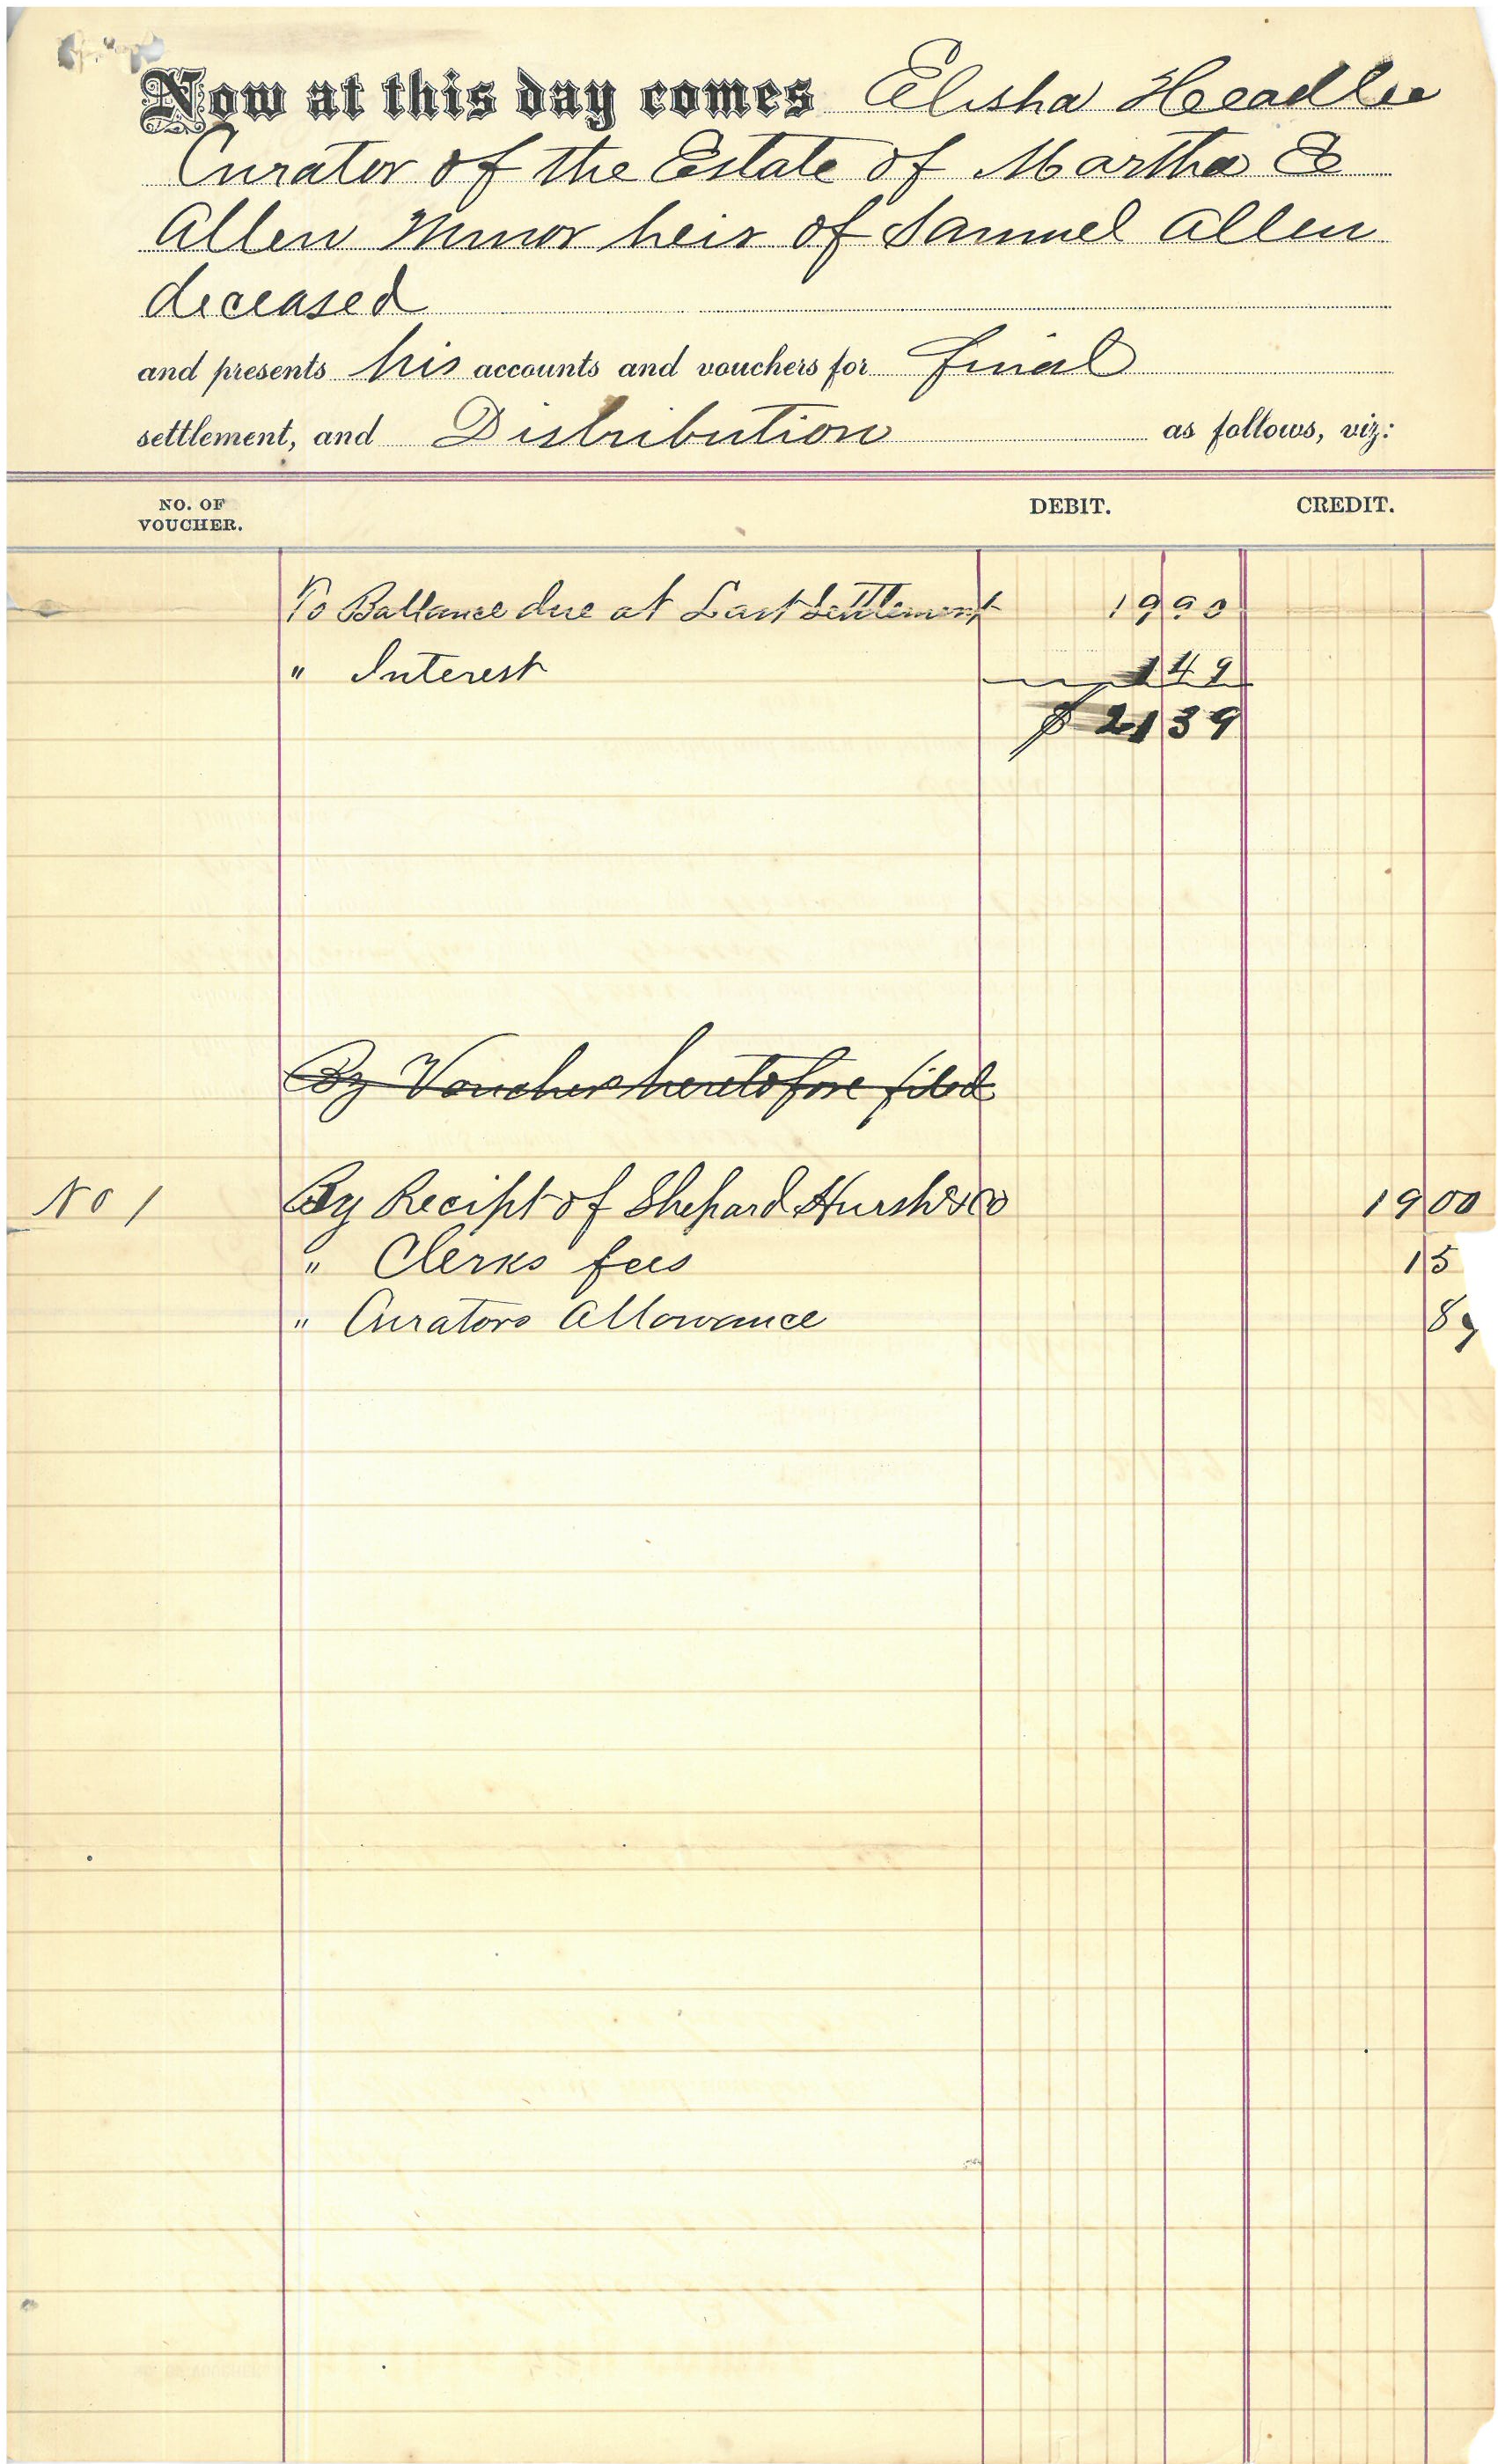 Now at this day comes Elisha Headlee
Curator of the Estate of Martha E
Allen Minor heir of Samuel Allen
deceased
and presents his accounts and vouchers for final
settlement, and Distribution as follows, viz:
NO. OF VOUCHER. DEBIT. CREDIT.
To Ballance due at Last Settlement 19 90
" Interest 1 49
$ 21 39
By Voucher heretofore filed
No 1 By Recipt of Shepard Hursh & Co 19 00
" Clerks fees 1 5
" Curators Allowance 89